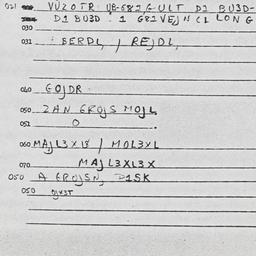 021 VŬZOTR UB-682, GULT D1 BU3D-
D1 BU3D. 1 G82 VEJN CL LONG
030
031 BERDL, / REJDL,
040 GOJDR
050 ZAN GROJS MOJL
051 O
060 MAJL3X18 / MOL3XL
070 MAJL3XL3X
050 A GROJSN, D1SK
050